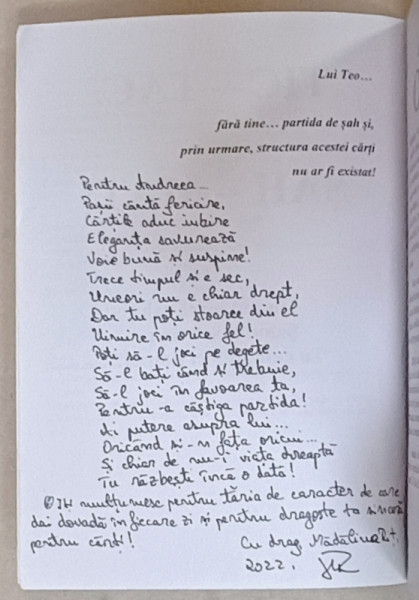 Lui Teo...
fără tine... partida de șah și,
prin urmare, structura acestei cărți
nu ar fi existat!
Pentru Andreea...
Pașii cântă fericire,
Cărțile aduc iubire
Eleganța savurează
Voie bună și suspine!
Trece timpul și e sec,
Uneori nu e chiar drept,
Dar tu poți stoarce din el
Uimire în orice fel!
Poți să-l joci pe degete...
Să-l bați când și trebuie,
Să-l joci în favoarea ta,
Pentru-a câștiga partida!
Ai putere asupra lui...
Oricând și-n fața oricui...
Și chiar de nu-i viața dreaptă
Tu răzbești încă o dată!
Îți mulțumesc pentru tăria de caracter de care
dai dovadă în fiecare zi și pentru dragostea ta sinceră
pentru cărți!
Cu drag, Mădălina
2022.